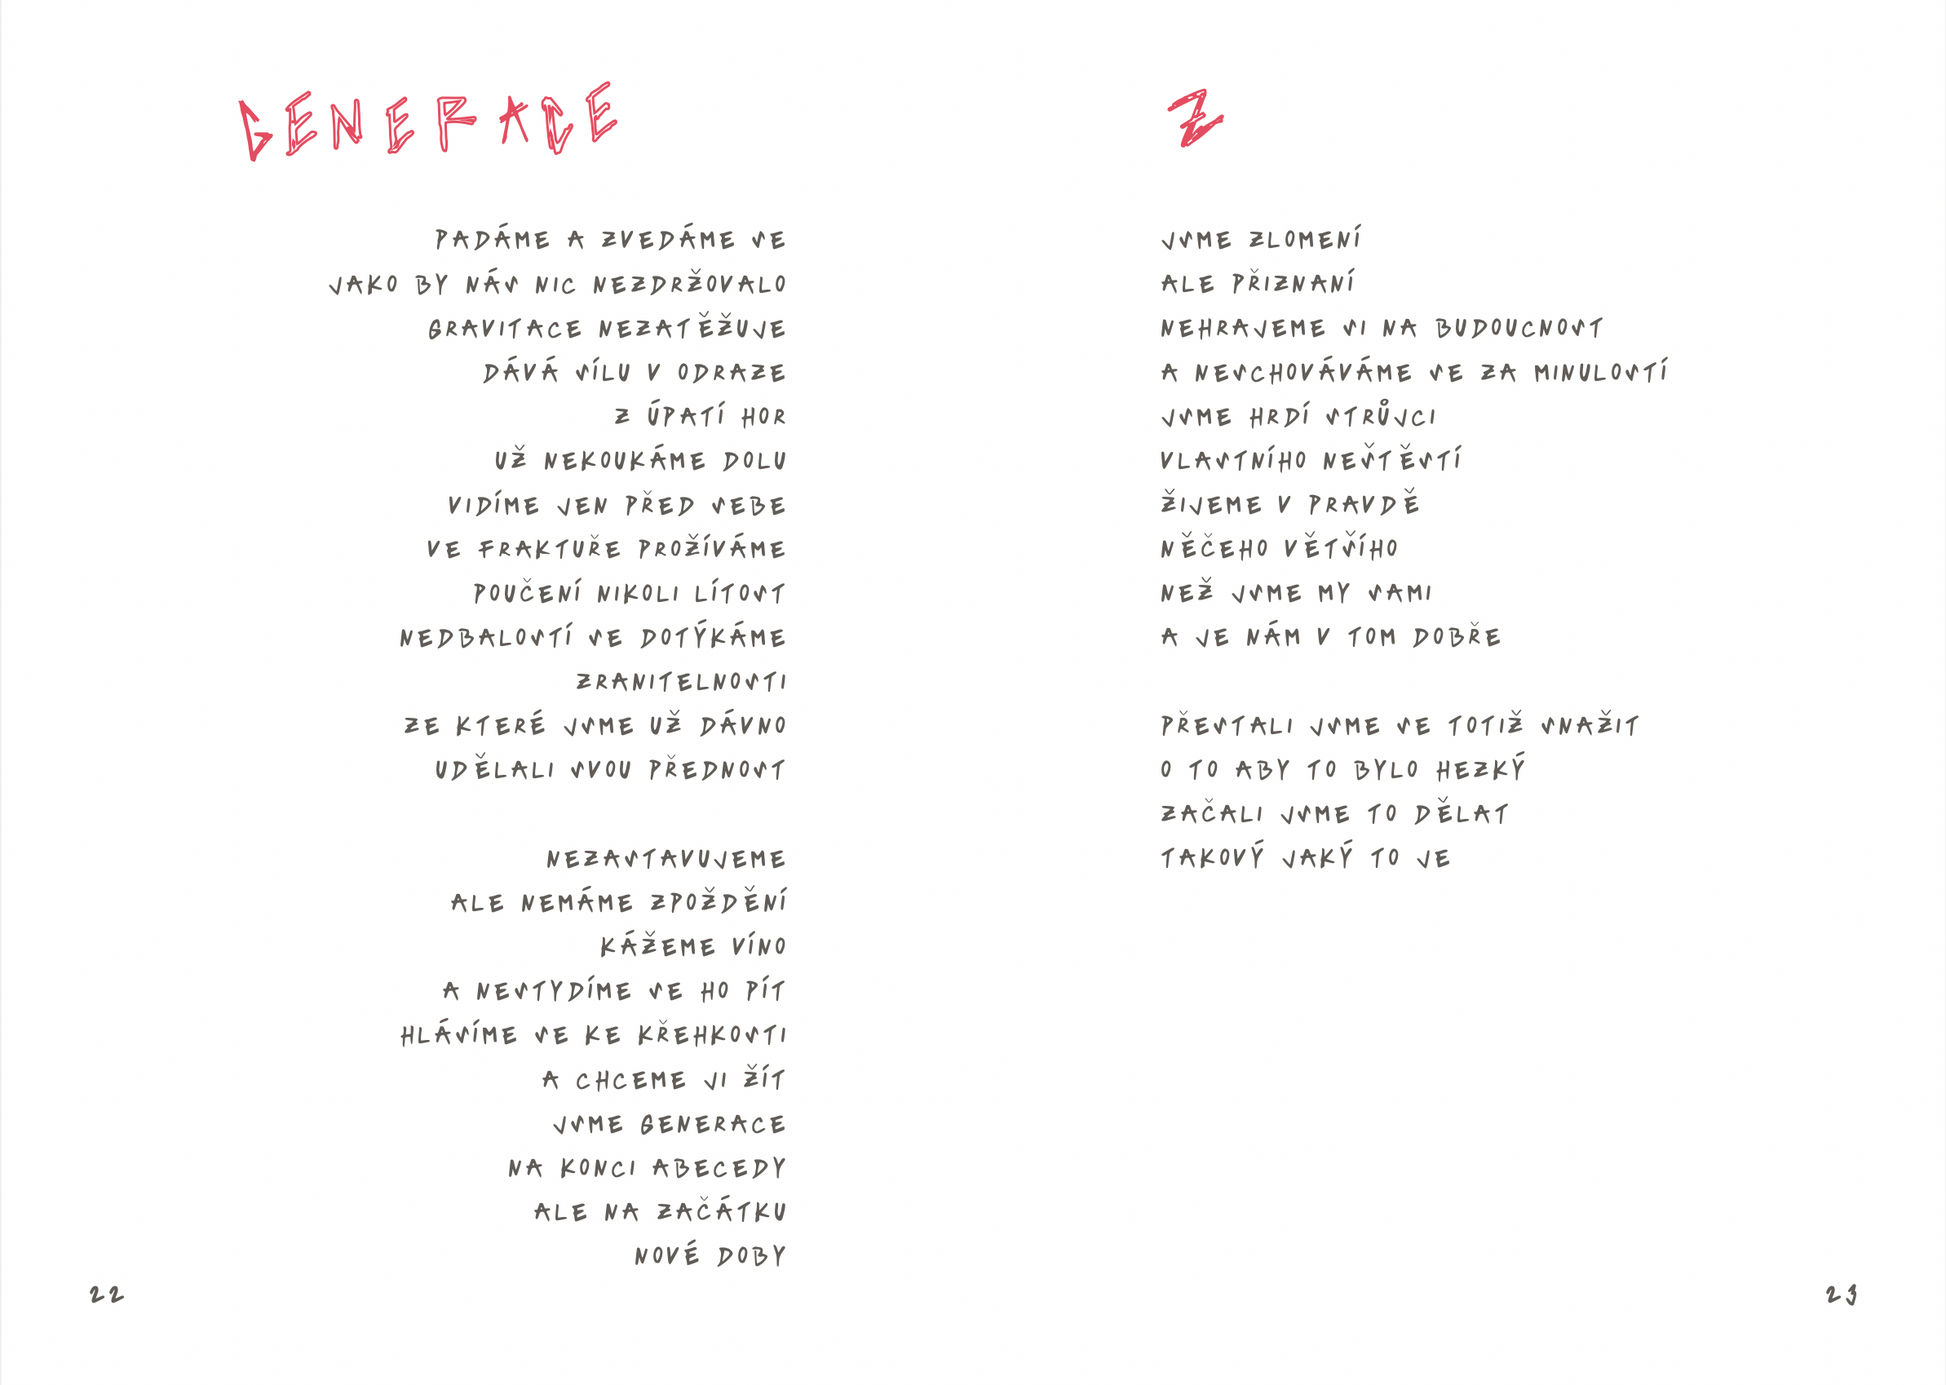 GENERACE
PADÁME A ZVEDÁME SE
JAKO BY NÁS NIC NEZDRŽOVALO
GRAVITACE NEZATĚŽUJE
DÁVÁ SÍLU V ODRAZE
Z ÚPATÍ HOR
UŽ NEKOUKÁME DOLU
VIDÍME JEN PŘED SEBE
VE FRAKTUŘE PROŽÍVÁME
POUČENÍ NIKOLI LÍTOST
NEDBALOSTÍ SE DOTÝKÁME
ZRANITELNOSTI
ZE KTERÉ JSME UŽ DÁVNO
UDĚLALI SVOU PŘEDNOST
NEZASTAVUJEME
ALE NEMÁME ZPOŽDĚNÍ
KÁŽEME VÍNO
A NESTYDÍME SE HO PÍT
HLÁSÍME SE KE KŘEHKOSTI
A CHCEME JI ŽÍT
JSME GENERACE
NA KONCI ABECEDY
ALE NA ZAČÁTKU
NOVÉ DOBY
22
Z
JSME ZLOMENÍ
ALE PŘIZNANÍ
NEHRAJEME SI NA BUDOUCNOST
A NESCHOVÁVÁME SE ZA MINULOSTÍ
JSME HRDÍ STRŮJCI
VLASTNÍHO NEŠTĚSTÍ
ŽIJEME V PRAVDĚ
NĚČEHO VĚTŠÍHO
NEŽ JSME MY SAMI
A JE NÁM V TOM DOBŘE
PŘESTALI JSME SE TOTIŽ SNAŽIT
O TO ABY TO BYLO HEZKÝ
ZAČALI JSME TO DĚLAT
TAKOVÝ JAKÝ TO JE
23